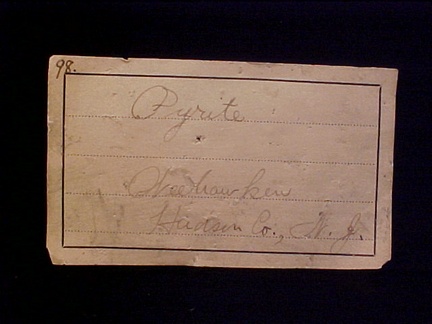 98.
Pyrite
Weehawken
Hudson Co., N. J.